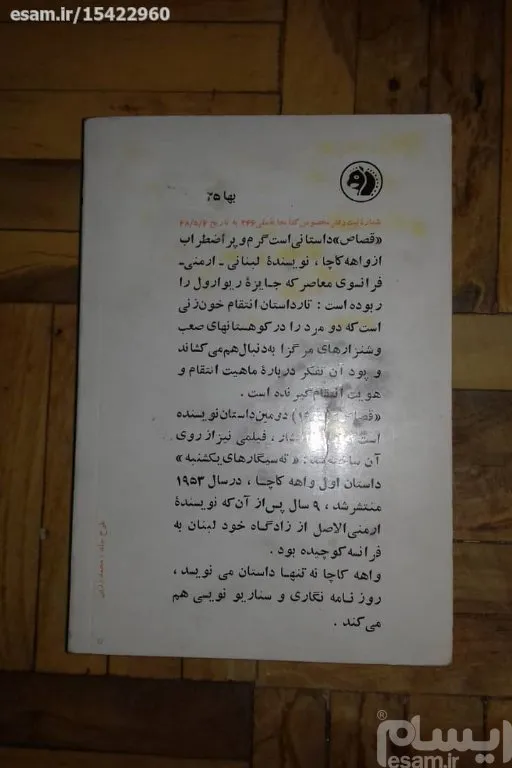 esam.ir/15422960
بها ۷۵
شمارهٔ ثبت دفتر مخصوص کتابخانهٔ ملی ۲۴۶ به تاریخ
«قصاص» داستانی است گرم و پر اضطراب
از واهه کاچا ، نویسندهٔ لبنانی ـ ارمنی ـ
فرانسوی معاصر که جایزهٔ ریوارول را
ربوده است : تار داستان انتقام خون زنی
است که دو مرد را در کوهستانهای صعب
و شنزارهای مرگزا به دنبال هم می کشاند
و پود آن تفکر دربارهٔ ماهیت انتقام و
هویت انتقام گیرنده است .
«قصاص» دومین داستان نویسنده
است فیلمی نیز از روی
آن ساخته شد : « ته سیگارهای یکشنبه »
داستان اول واهه کاچا ، در سال ۱۹۵۳
منتشر شد ، ۹ سال پس از آن که نویسندهٔ
ارمنی الاصل از زادگاه خود لبنان به
فرانسه کوچیده بود .
واهه کاچا نه تنها داستان می نویسد ،
روزنامه نگاری و سناریو نویسی هم
می کند .
طرح جلد :
ایسام
esam.ir